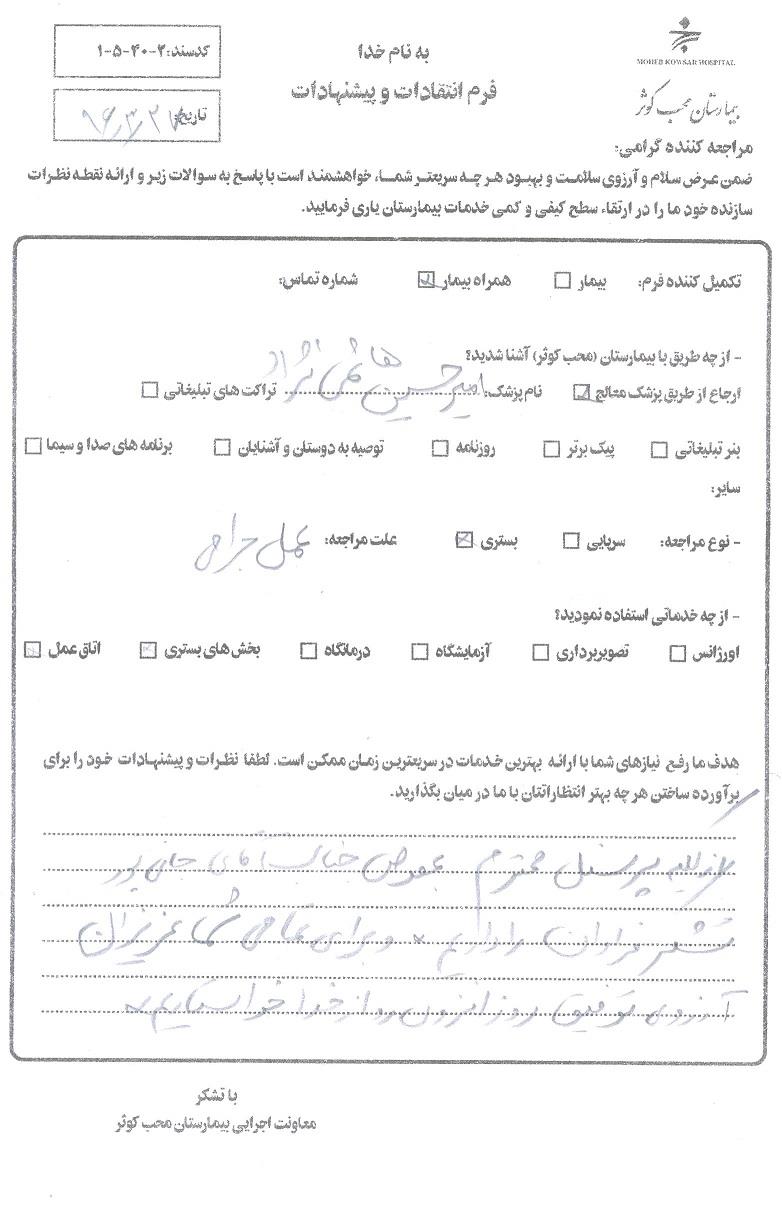 MOHEB KOWSAR HOSPITAL
بیمارستان محب کوثر
به نام خدا
فرم انتقادات و پیشنهادات
کدسند: ۲-۴۰-۵-۱
تاریخ: ۹۶/۳/۲۷
مراجعه کننده گرامی:
ضمن عرض سلام و آرزوی سلامت و بهبود هر چه سریعتر شما، خواهشمند است با پاسخ به سوالات زیر و ارائه نقطه نظرات
سازنده خود ما را در ارتقاء سطح کیفی و کمی خدمات بیمارستان یاری فرمایید.
تکمیل کننده فرم: بیمار همراه بیمار شماره تماس:
- از چه طریق با بیمارستان (محب کوثر) آشنا شدید؟
ارجاع از طریق پزشک معالج نام پزشک: امیر حسین هاشمی نژاد تراکت های تبلیغاتی
بنر تبلیغاتی پیک برتر روزنامه توصیه به دوستان و آشنایان برنامه های صدا و سیما
سایر:
- نوع مراجعه: سرپایی بستری علت مراجعه: عمل جراحی
- از چه خدماتی استفاده نمودید؟
اورژانس تصویربرداری آزمایشگاه درمانگاه بخش های بستری اتاق عمل
هدف ما رفع نیازهای شما با ارائه بهترین خدمات در سریعترین زمان ممکن است. لطفا نظرات و پیشنهادات خود را برای
برآورده ساختن هر چه بهتر انتظاراتتان با ما در میان بگذارید.
از کلیه پرسنل محترم بخصوص جناب آقای
تشکر فراوان را داریم و برای تمامی شما عزیزان
آرزوی توفیق روز افزون از خدا خواستاریم
با تشکر
معاونت اجرایی بیمارستان محب کوثر